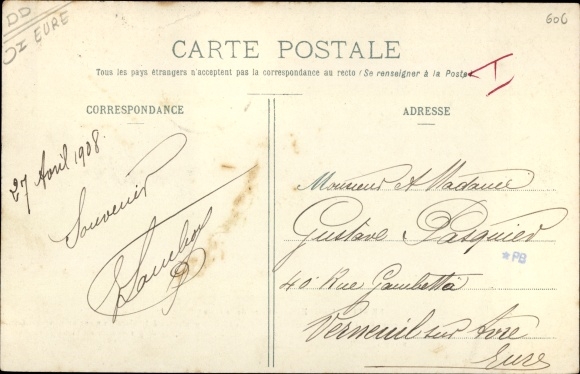 DD
OI EURE
606
CARTE POSTALE
Tous les pays étrangers n'acceptent pas la correspondance au recto (Se renseigner à la Poste)
CORRESPONDANCE
27 Avril 1908.
Souvenir
ADRESSE
Monsieur et Madame
Gustave Pasquier
*PB
40 Rue Gambetta
Verneuil sur Avre
Eure